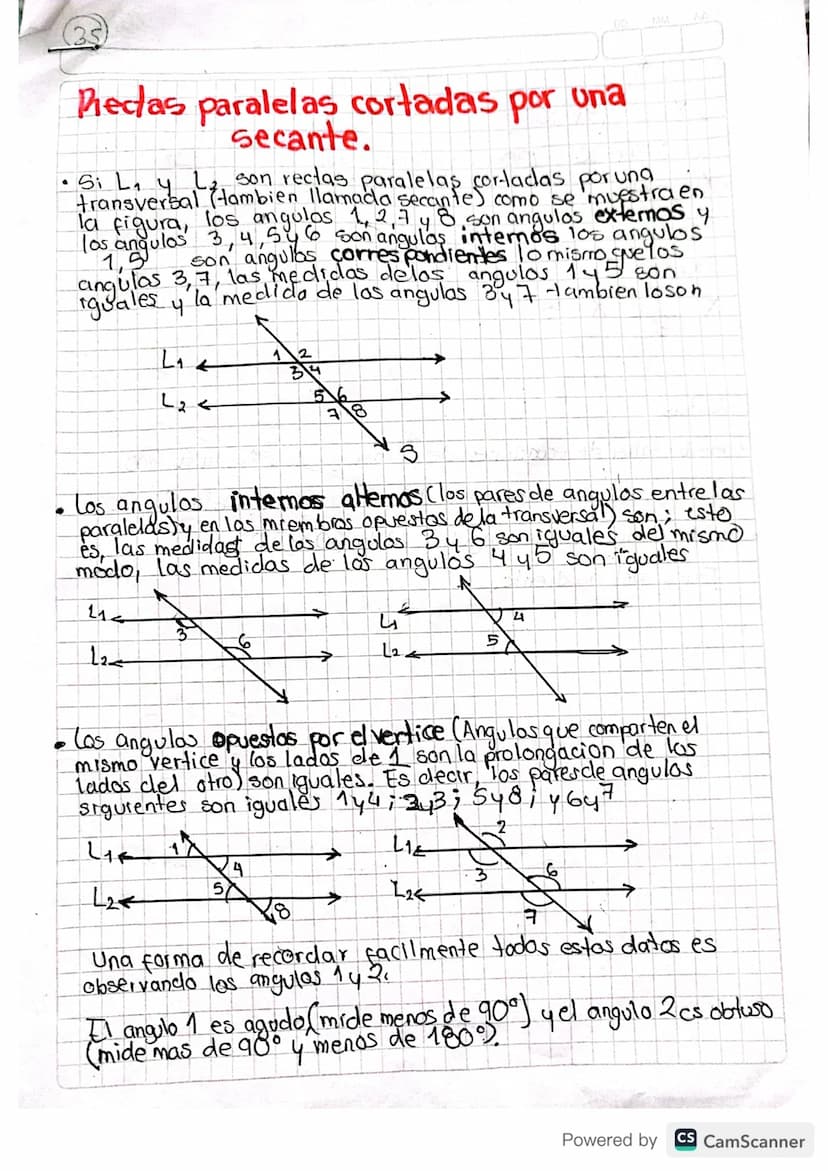 35
Rectas paralelas cortadas por una
secante.
• Si L1 y L2 son rectas paralelas cortadas por una
transversal (tambien llamada secante) como se muestra en
la figura, los angulos 1, 2, 7 y 8 son angulos externos y
los angulos 3, 4, 5 y 6 son angulos internos los angulos
1, 5 son angulos correspondientes lo mismo que los
angulos 3, 7, las medidas de los angulos 1 y 5 son
iguales y la medida de los angulos 3 y 7 tambien loson
1 2
L1
3 4
5 6
L2
7 8
S
• Los angulos internos alternos (los pares de angulos entre las
paralelas) y en los miembros opuestos de la transversal) son; esto
es, las medidast de los angulos 3 y 6 son iguales del mismo
modo, las medidas de los angulos 4 y 5 son iguales
L1 3 6 L2
L1 4 5 L2
• Los angulos opuestos por el vertice (Angulos que comparten el
mismo vertice y los lados de 1 son la prolongacion de los
lados del otro) son iguales. Es decir, los pares de angulos
siguientes son iguales 1 y 4; 2 y 3; 5 y 8; y 6 y 7
L1 1 4 L2 5 8
L1 2 3 L2 6 7
Una forma de recordar facilmente todos estos datos es
observando los angulos 1 y 2.
El angulo 1 es agudo (mide menos de 90°) y el angulo 2 es obtuso
(mide mas de 90° y menos de 180°).
Powered by CS CamScanner